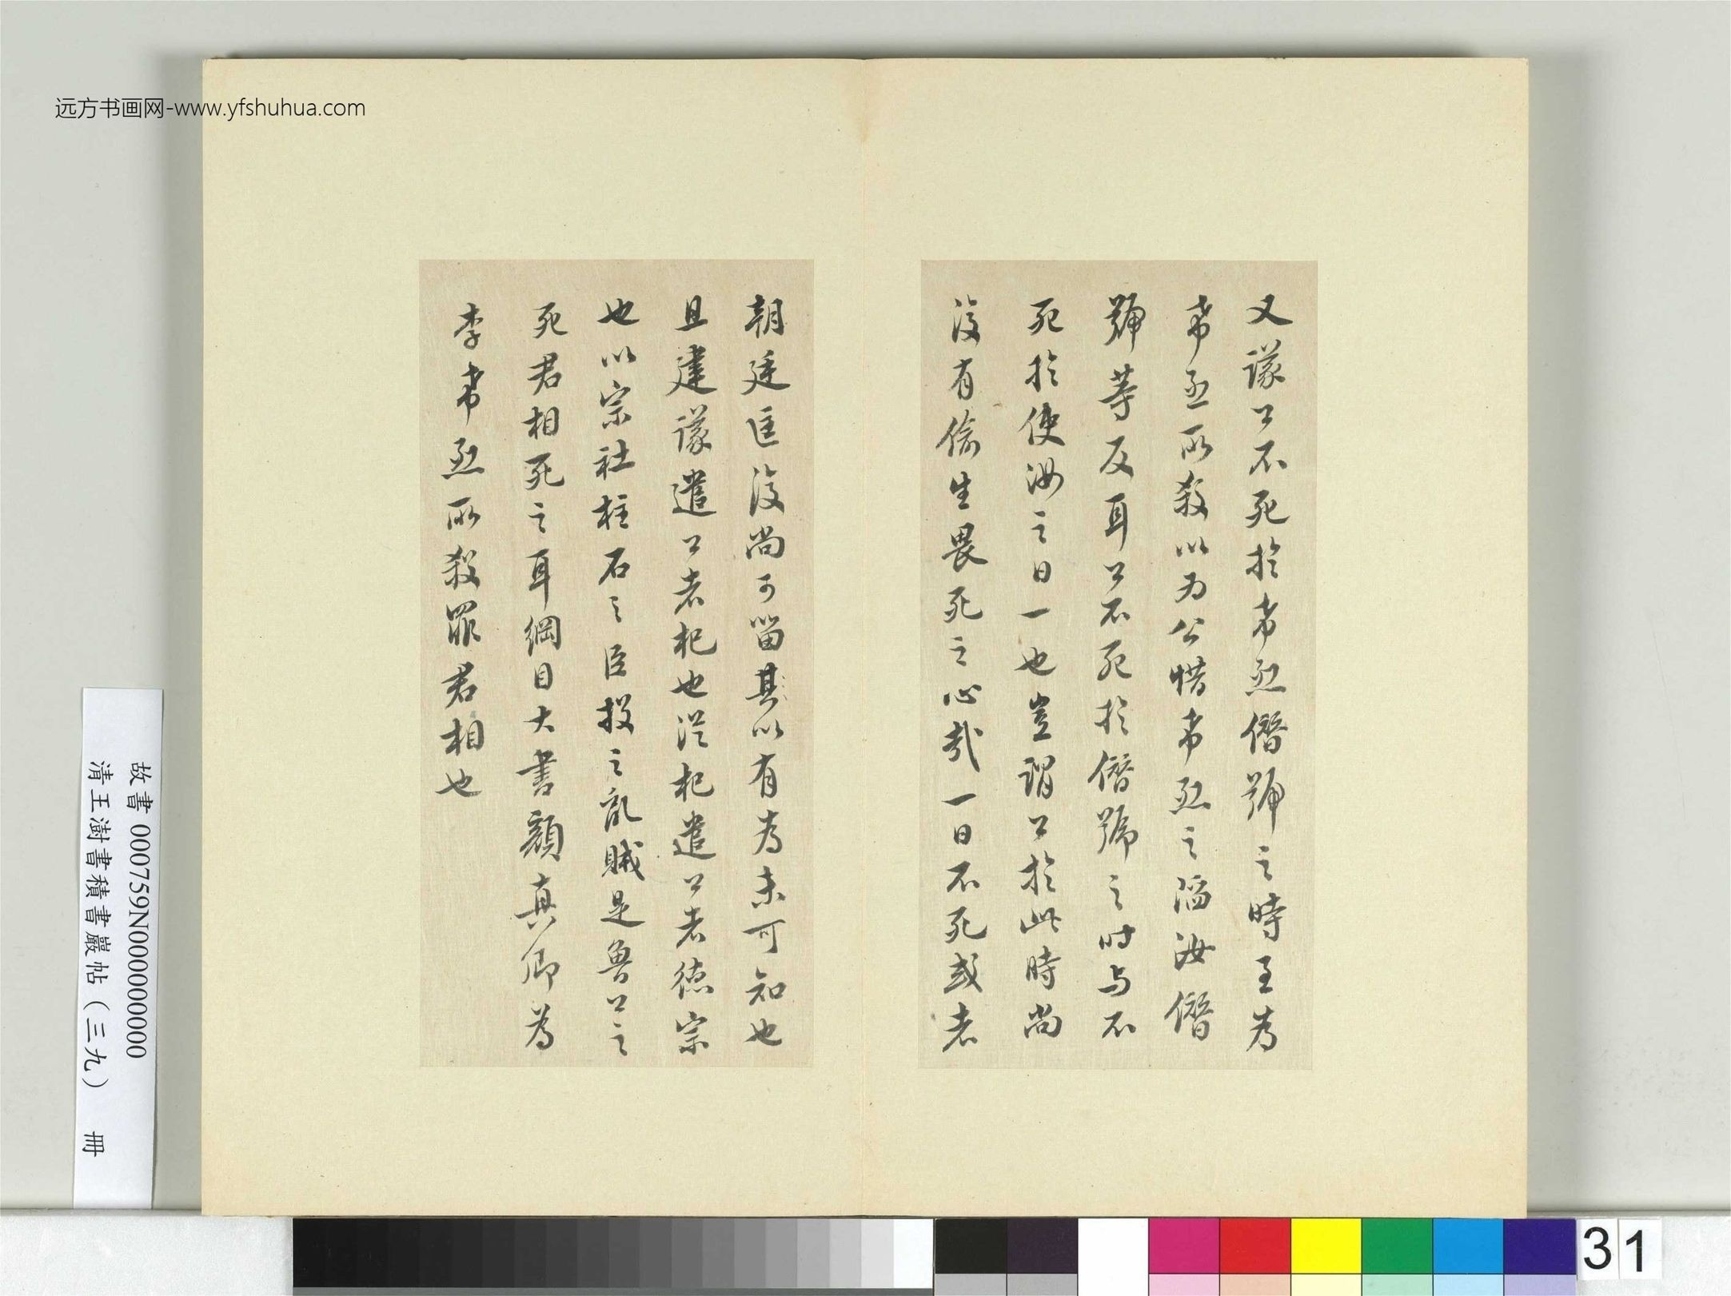 远方书画网-www.yfshuhua.com
又議公不死於希烈僭號之時至為
希烈所殺以為公惜希烈之陷汝僭
號等反耳公不死於僭號之时与不
死於使汝之日一也豈謂公於此時尚
復有偷生畏死之心哉一日不死或者
朝廷匡復尚可留其以有為未可知也
且建議遣公者杞也從杞遣公者德宗
也以宗社柱石之臣投之乱賊是魯公之
死君相死之耳綱目大書顏真卿為
李希烈所殺罪君相也
故書 000759N000000000
清王澍書積書巖帖（三九） 冊
31